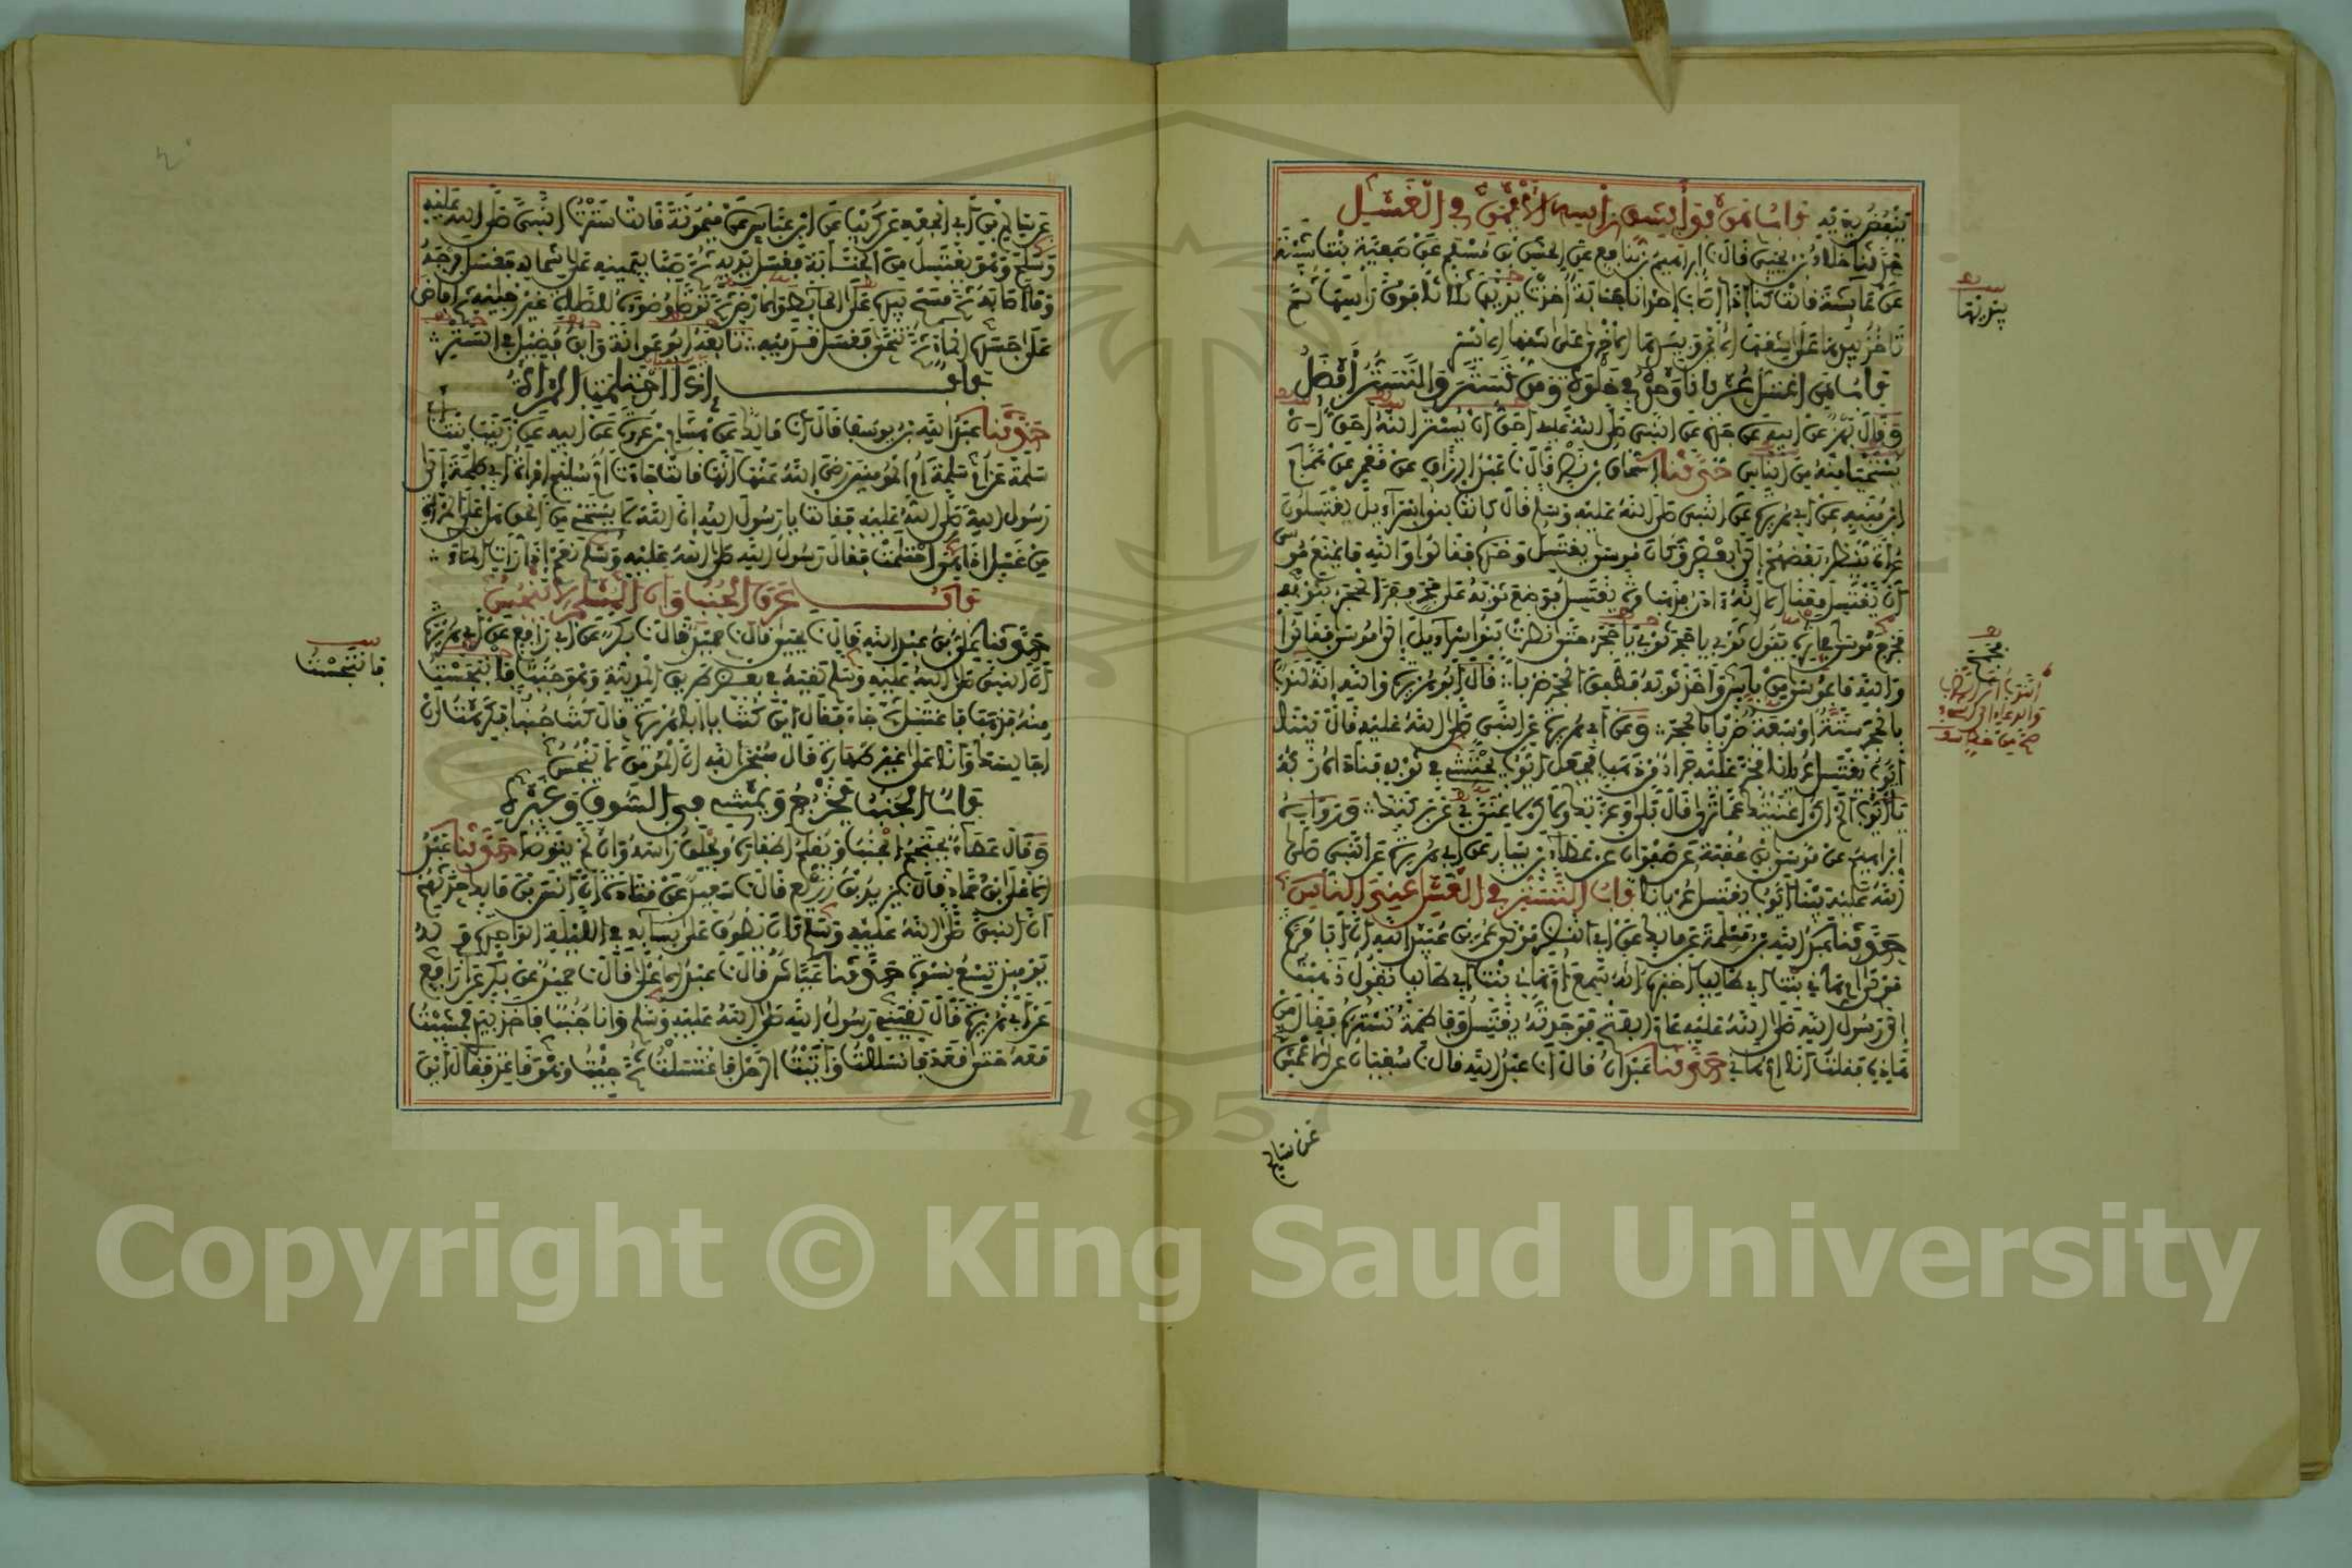 ينفض بيديه باب من بدأ بشق رأسه الأيمن في الغسل
حدثنا خلاد بن يحيى قال نا إبراهيم بن نافع عن الحسن بن مسلم عن صفية بنت شيبة
عن عائشة قالت كنا إذا أصاب إحدانا جنابة أخذت بيديها ثلاثا فوق رأسها ثم
تأخذ بيدها على شقها الأيمن وبيدها الأخرى على شقها الأيسر
باب من اغتسل عريانا وحده في خلوة ومن تستر والتستر أفضل
وقال بهز عن أبيه عن جده عن النبي صلى الله عليه الله أحق أن
يستحيا منه من الناس حدثنا إسحاق بن نصر قال نا عبد الرزاق عن معمر عن همام
ابن منبه عن أبي هريرة عن النبي صلى الله عليه وسلم قال كانت بنوا إسراءيل يغتسلون
عراة ينظر بعضهم إلى بعض وكان موسى يغتسل وحده فقالوا والله ما يمنع موسى
أن يغتسل معنا إلا أنه ءادر فذهب مرة يغتسل فوضع ثوبه على حجر ففر الحجر بثوبه
فخرج موسى في إثره يقول ثوبي يا حجر ثوبي يا حجر حتى نظرت بنوا إسراءيل إلى موسى فقالوا
والله ما بموسى من بأس وأخذ ثوبه فطفق الحجر ضربا قال أبو هريرة والله إنه لندب
بالحجر ستة أو سبعة ضربا بالحجر وعن أبي هريرة عن النبي صلى الله عليه قال بينا
أيوب يغتسل عريانا فخر عليه جراد من ذهب فجعل أيوب يحتثي في ثوبه فناداه ربه
يا أيوب ألم أكن أغنيتك عما ترى قال بلى وعزتك ولكن لا غنى بي عن بركتك ورواه
إبراهيم عن موسى بن عقبة عن صفوان عن عطاء بن يسار عن أبي هريرة عن النبي صلى
الله عليه بينا أيوب يغتسل عريانا باب التستر في الغسل عند الناس
حدثنا عبد الله بن مسلمة عن مالك عن أبي النضر مولى عمر بن عبيد الله أن أبا مرة
مولى أم هانئ بنت أبي طالب أخبره أنه سمع أم هانئ بنت أبي طالب تقول ذهبت
إلى رسول الله صلى الله عليه عام الفتح فوجدته يغتسل وفاطمة تستره فقال من
هاذه فقلت أنا أم هانئ حدثنا عبدان قال أنا عبد الله قال نا سفيان عن الأعمش
عن سالم
يديها
عن سالم بن أبي الجعد عن كريب عن ابن عباس عن ميمونة قالت سترت النبي صلى الله عليه
وسلم وهو يغتسل من الجنابة فغسل يديه ثم صب بيمينه على شماله فغسل فرجه
وما أصابه ثم مسح بيده على الحائط أو الأرض ثم توضأ وضوءه للصلاة غير رجليه ثم أفاض
على جسده الماء ثم تنحى فغسل قدميه تابعه أبو عوانة وابن فضيل في الستر
باب إذا احتلمت المرأة
حدثنا عبد الله بن يوسف قال أنا مالك عن هشام بن عروة عن أبيه عن زينب بنت
سلمة عن أم سلمة أم المؤمنين رضي الله عنها أنها قالت جاءت أم سليم امرأة أبي طلحة إلى
رسول الله صلى الله عليه فقالت يا رسول الله إن الله لا يستحي من الحق هل على المرأة
من غسل إذا هي احتلمت فقال رسول الله صلى الله عليه وسلم نعم إذا رأت الماء
باب عرق الجنب وأن المسلم لا ينجس
حدثنا علي بن عبد الله قال نا يحيى قال نا حميد قال نا بكر عن أبي رافع عن أبي هريرة
أن النبي صلى الله عليه وسلم لقيه في بعض طريق المدينة وهو جنب فانبجست
منه فذهب فاغتسل ثم جاء فقال أين كنت يا أبا هريرة قال كنت جنبا فكرهت أن
أجالسك وأنا على غير طهارة قال سبحان الله إن المؤمن لا ينجس
باب الجنب يخرج ويمشي في السوق وغيره
وقال عطاء يحتجم الجنب ويقلم أظفاره ويحلق رأسه وإن لم يتوضأ حدثنا عبد
الأعلى ابن حماد قال نا يزيد بن زريع قال نا سعيد عن قتادة أن أنس بن مالك حدثهم
أن النبي صلى الله عليه وسلم كان يطوف على نسائه في الليلة الواحدة وله
يومئذ تسع نسوة حدثنا عياش قال نا عبد الأعلى قال نا حميد عن بكر عن أبي رافع
عن أبي هريرة قال لقيني رسول الله صلى الله عليه وسلم وأنا جنب فأخذ بيدي فمشيت
معه حتى قعد فانسللت وأتيت الرحل فاغتسلت ثم جئت وهو قاعد فقال أين
فانتجست